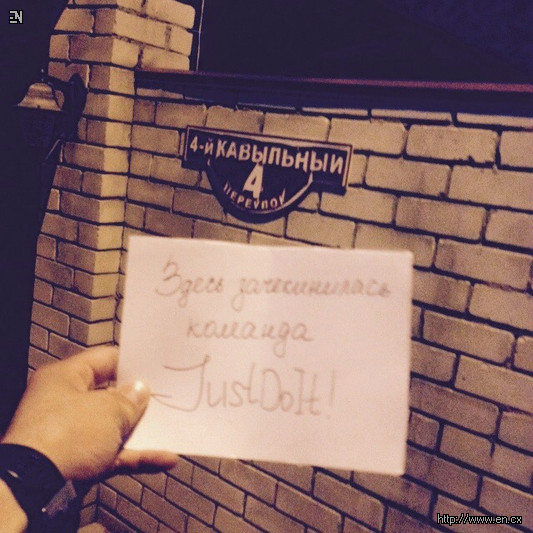 EN
4-й КАВЫЛЬНЫЙ
4
ПЕРЕУЛОК
Здесь зачекинилась
команда
JustDoIt!
http://www.en.cx